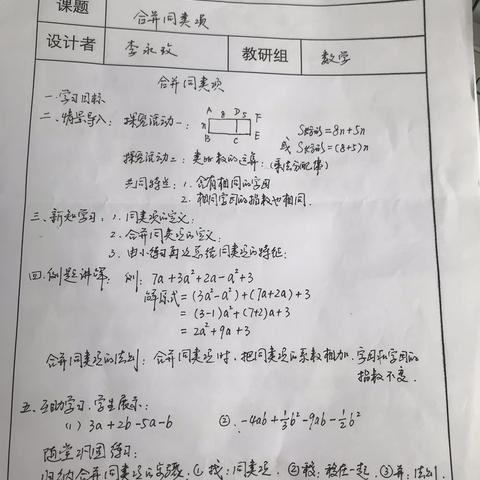 课题 合并同类项
设计者 李永玫 教研组 数学
合并同类项
一.学习目标
二、情景导入: 探究活动一: A 8 D 5 F
n
B C E
S长方形=8n+5n
或 S长方形=(8+5)n
探究活动二: 类比数的运算:(乘法分配律)
共同特点: 1.含有相同的字母
2.相同字母的指数也相同.
三、新知学习: 1.同类项的定义:
2.合并同类项的定义:
3.由小练习再次总结同类项的特征:
四.例题讲解: 例: 7a+3a²+2a-a²+3
解:原式=(3a²-a²)+(7a+2a)+3
=(3-1)a²+(7+2)a+3
=2a²+9a+3
合并同类项的法则: 合并同类项时,把同类项的系数相加.字母和字母的
指数不变.
五.互助学习.学生展示:
(1) 3a+2b-5a-b ②.-4ab+⅓b²-9ab-½b²
随堂巩固练习:
归纳合并同类项的步骤.①找:同类项. ②移:移在一起.③并:法则.